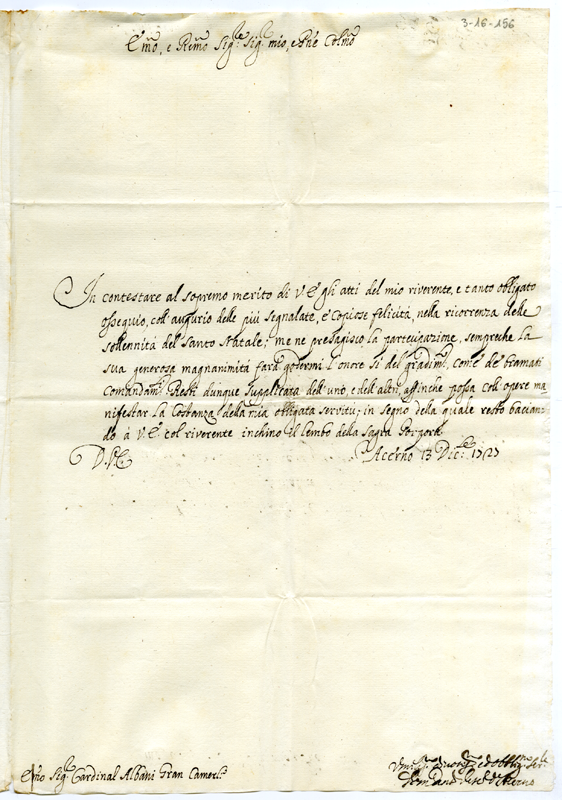 3-16-156
Em̃o, e Rem̃o Sig.re Sig.r mio, e Pñe Colm̃o
In contestare al sopremo merito di V.E. gli atti del mio riverente, e tanto obligato
ossequio, coll'augurio delle più segnalate, e copiose felicità, nella ricorrenza delle
sollennità del Santo Natale; me ne presagisco la partecipazione, sempreche la
sua generosa magnanimità farà godermi l'onore sì del gradim.to, come de' bramati
Comandam.ti. Resti dunque supplicata dell'uno, e dell'altri, affinche possa coll'opere ma-
nifestar la Costanza della mia obligata servitù; in segno della quale resto bacian-
do à V.E. col riverente inchino il lembo della Sagra Porpora
D.V.E. Acerno 13 Dic.bre 1727
Em̃o Sig.re Cardinal Albani Gran Camerl.o